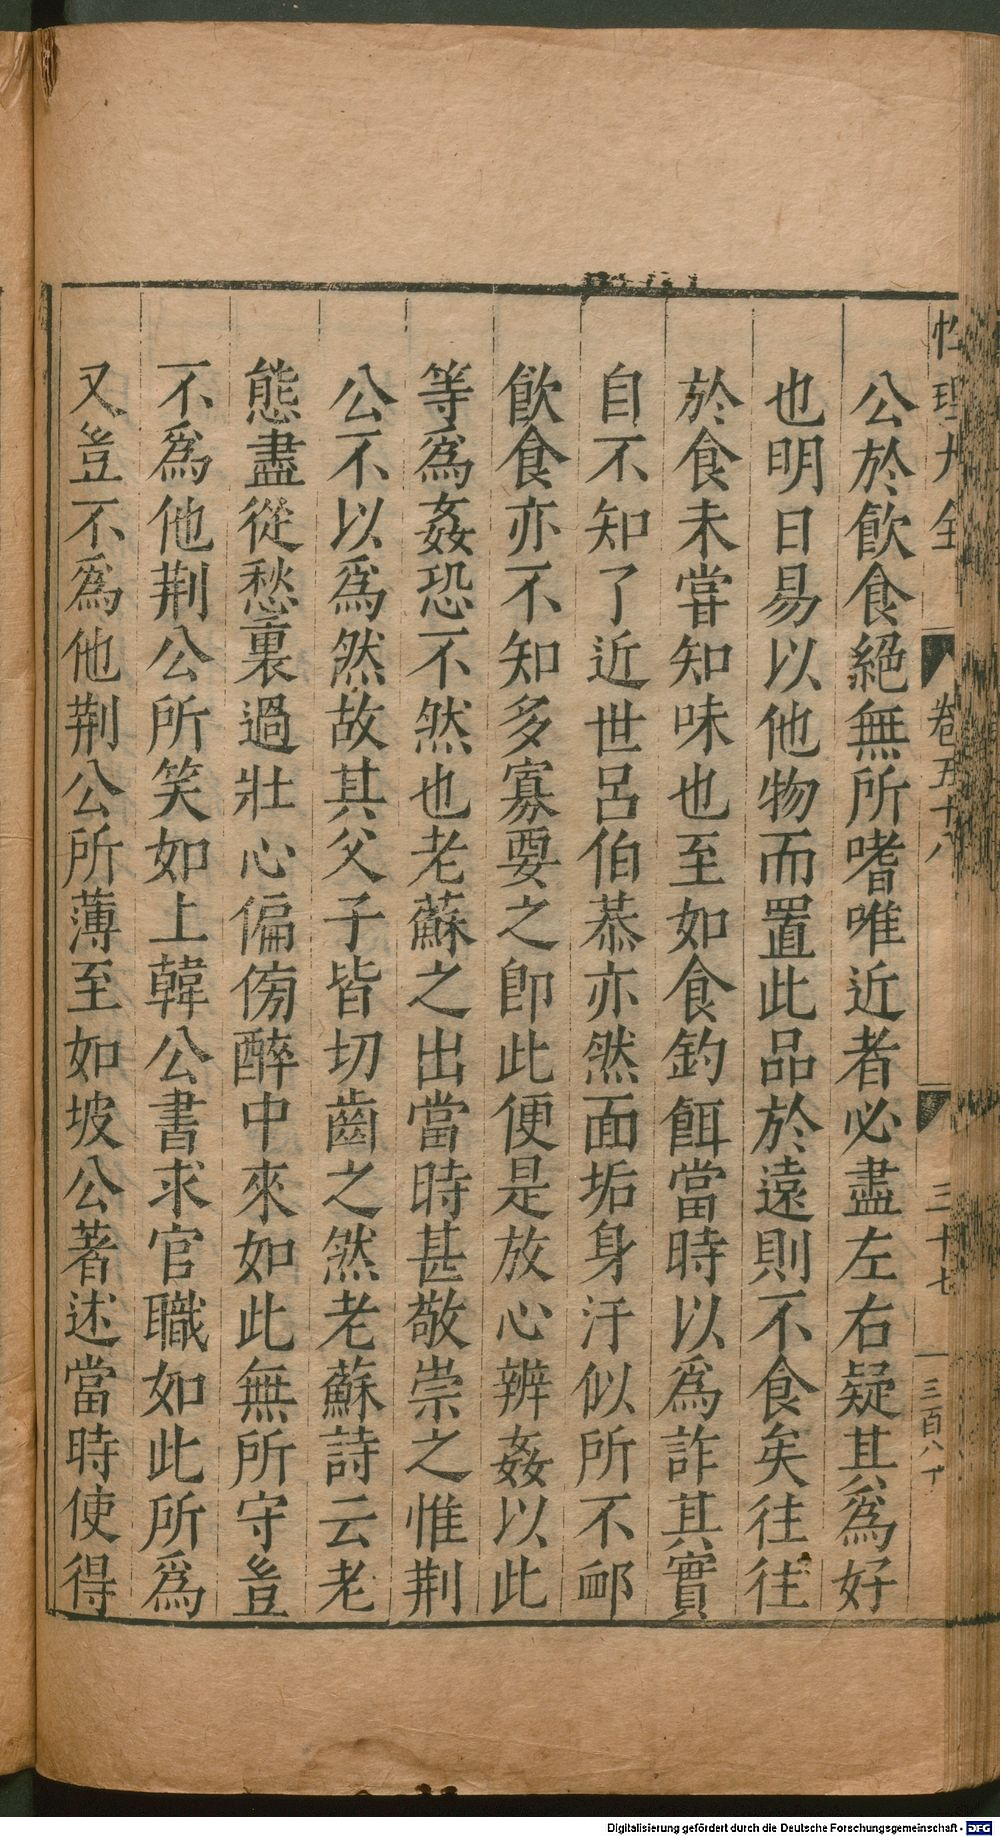 性理大全 卷五十八 三十七 三百八十
公於飮食絕無所嗜唯近者必盡左右疑其爲好
也明日易以他物而置此品於遠則不食矣往往
於食未嘗知味也至如食釣餌當時以爲詐其實
自不知了近世呂伯恭亦然面垢身汙似所不䘏
飮食亦不知多寡要之卽此便是放心辨姦以此
等爲姦恐不然也老蘇之出當時甚敬崇之惟荆
公不以爲然故其父子皆切齒之然老蘇詩云老
態盡從愁裏過壯心偏傍醉中來如此無所守豈
不爲他荆公所笑如上韓公書求官職如此所爲
又豈不爲他荆公所薄至如坡公著述當時使得
Digitalisierung gefördert durch die Deutsche Forschungsgemeinschaft - DFG